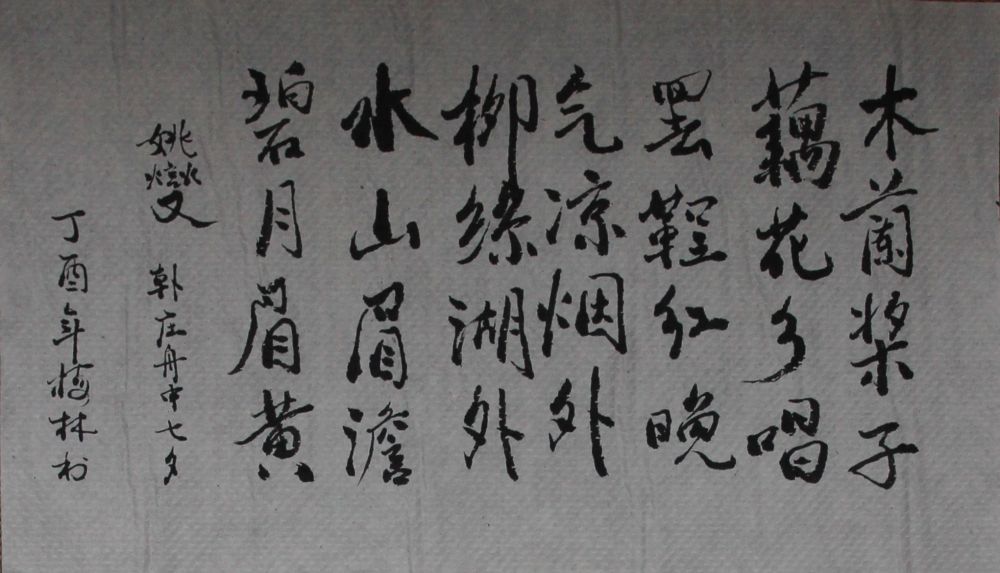 木蘭桨子
藕花乡唱
罢鞓红晚
气凉烟外
柳絲湖外
水山眉澹
碧月眉黄
姚燮 韩庄舟中七夕
丁酉年梅林